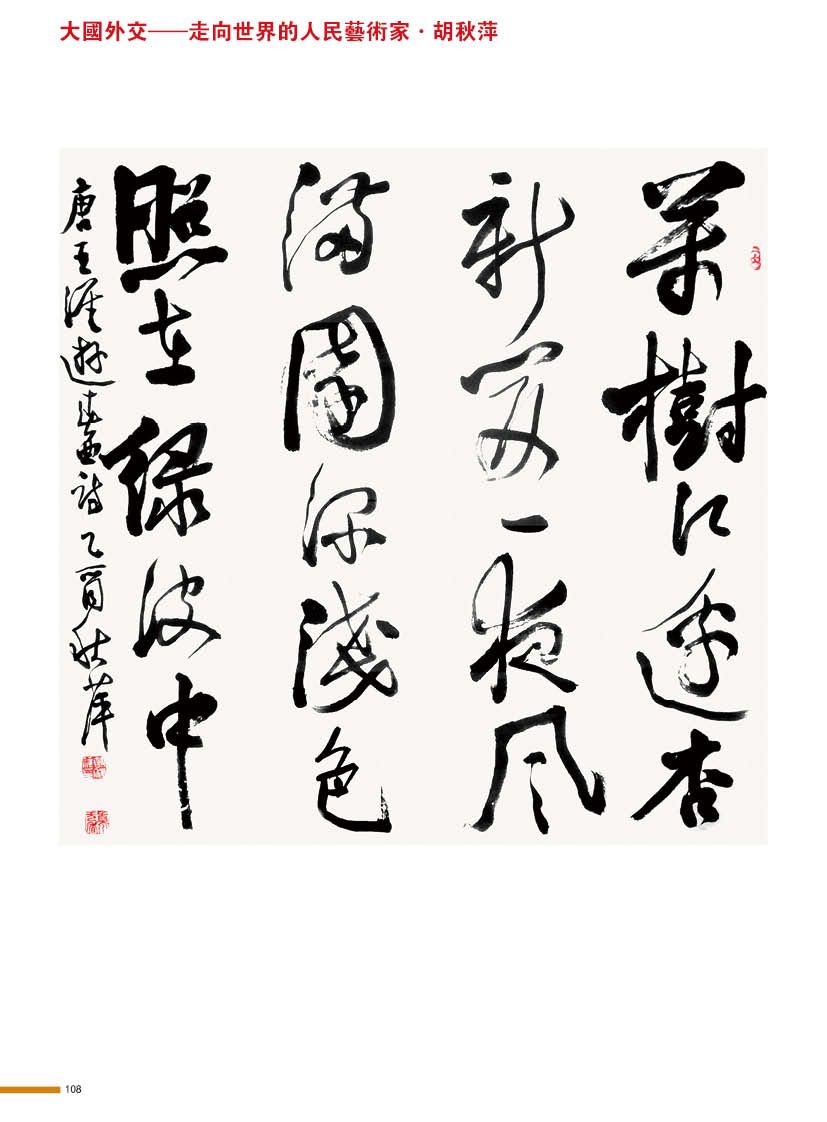 大國外交——走向世界的人民藝術家·胡秋萍
萬樹江邊杏
新開一夜風
滿園深淺色
照在綠波中
唐王涯遊春曲詩乙酉秋萍
108